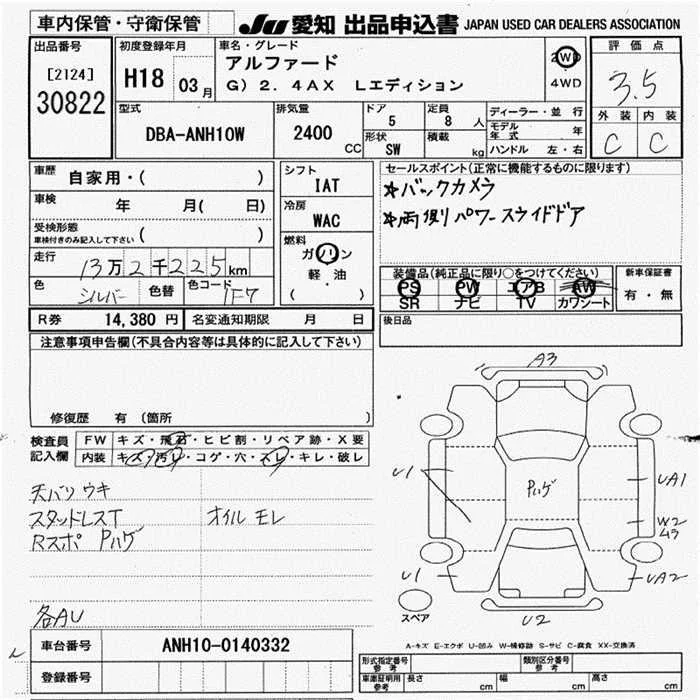 車内保管・守衛保管 JU 愛知 出品申込書 JAPAN USED CAR DEALERS ASSOCIATION
出品番号
[2124]
30822
初度登録年月
H18 03月
車名・グレード
アルファード
G) 2.4AX Lエディション
2WD
4WD
評価点
3.5
外装 内装
C C
型式
DBA-ANH10W
排気量
2400 CC
ドア
5
定員
8 人
形状
SW
積載
kg
ディーラー・並行
モデル年式 年
ハンドル 左・右
車歴 自家用・( )
車検 年 月( 日)
受検形態
車検付きのみ記入して下さい ( )
走行 13万2千225km
色 シルバー 色替 色コード 1F7
シフト
IAT
冷房
WAC
燃料
ガソリン
軽油
( )
セールスポイント(正常に機能するものに限ります)
★バックカメラ
★両側パワースライドドア
装備品(純正品に限り○をつけてください)
PS PW エアB AW
SR ナビ TV カワシート
新車保証書
有・無
R券 14,380 円 名変通知期限 月 日
後日品
注意事項申告欄(不具合内容等は具体的に記入して下さい)
修復歴 有(箇所 )
検査員記入欄
FW キズ・飛石・ヒビ割・リペア跡・X要
内装 キズ・汚レ・コゲ・穴・スレ・キレ・破レ
天バリ ウキ
スタッドレスT オイル モレ
Rスポ Pハゲ
各AU
A3
U1
Pハゲ
UA1
W2
U1
UA2
U2
スペア
A-キズ E-エクボ U-凹み W-補修跡 S-サビ C-腐食 XX-交換済
車台番号 ANH10-0140332
登録番号
形式指定番号
参考
類別区分番号
参考
車庫証明用
参考
長さ cm 幅 cm 高さ cm